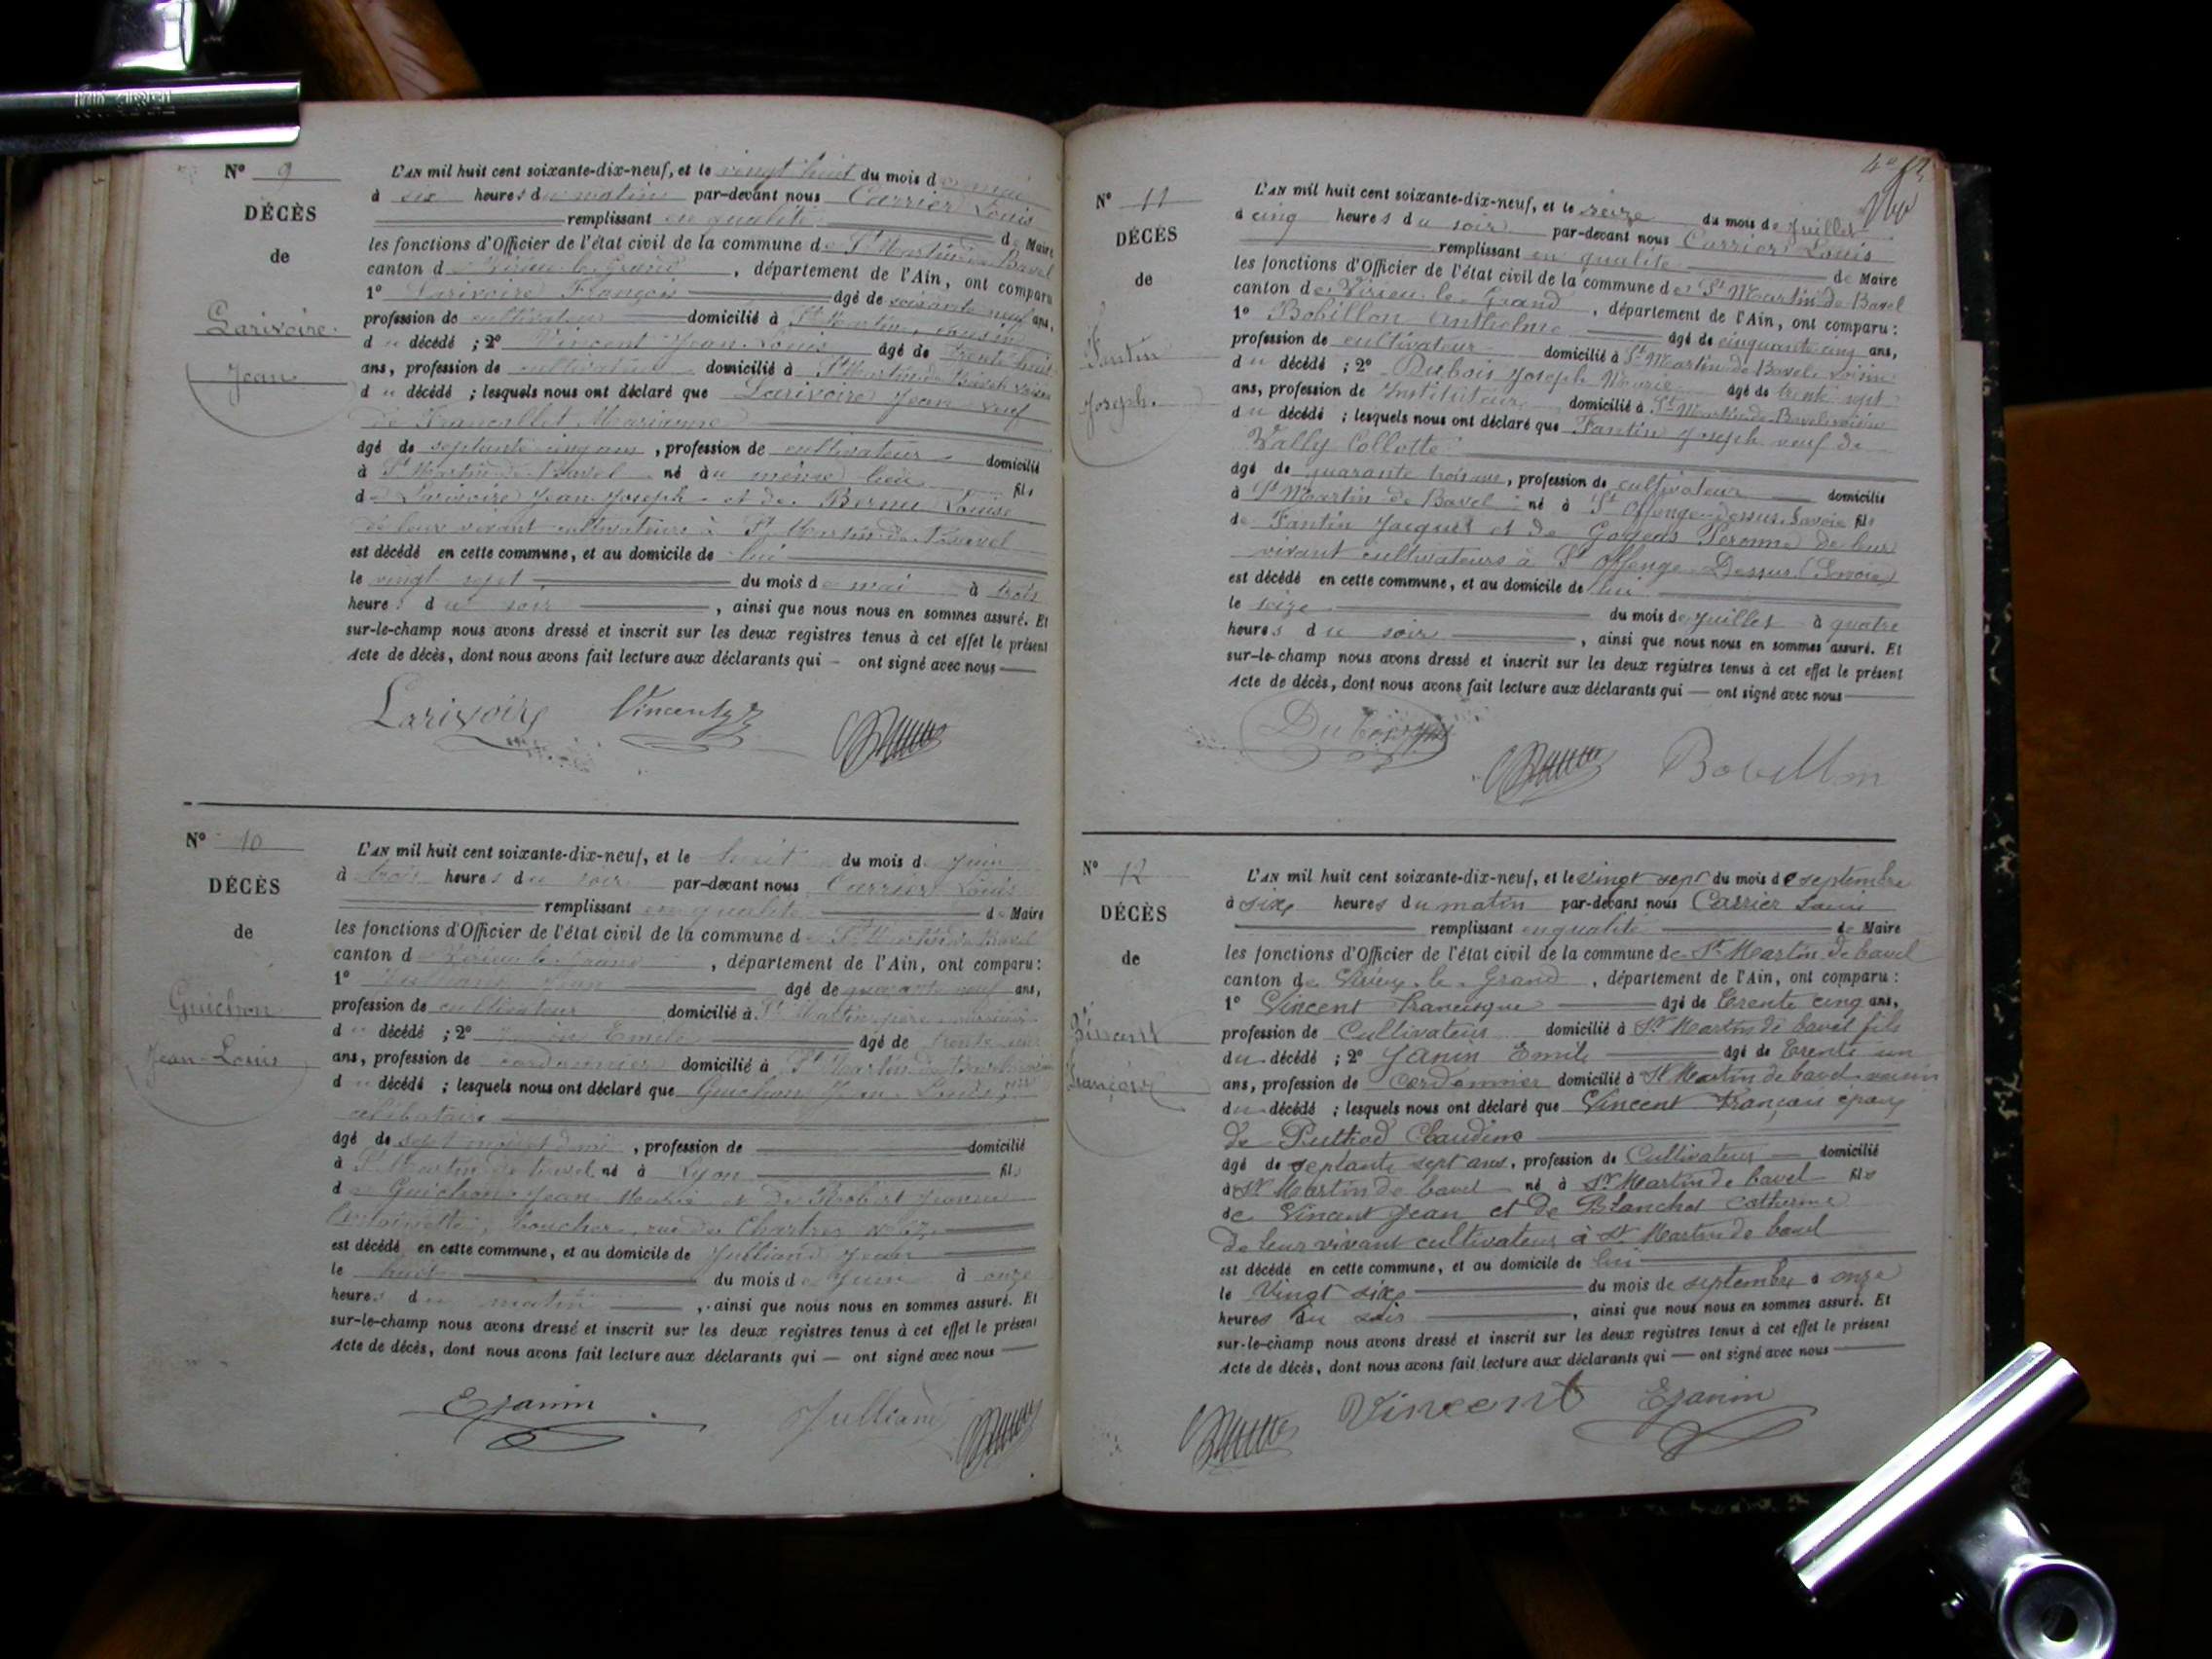 N° 9
DÉCÈS
de
Larivoire
Jean
L'AN mil huit cent soixante-dix-neuf, et le vingt huit du mois de mai
à six heures du matin par-devant nous Carrier Louis
remplissant en qualité de Maire
les fonctions d'Officier de l'état civil de la commune de St Martin de Bavel
canton de Virieu le Grand, département de l'Ain, ont comparu
1° Larivoire François âgé de soixante neuf ans,
profession de cultivateur domicilié à St Martin, cousin
du décédé ; 2° Vincent Jean Louis âgé de trente huit
ans, profession de cultivateur domicilié à St Martin de Bavel voisin
du décédé ; lesquels nous ont déclaré que Larivoire Jean veuf
de Marianne
âgé de septante cinq ans, profession de cultivateur domicilié
à St Martin de Bavel né au même lieu fils
de Larivoire Jean Joseph et de Bernu Louise
de leur vivant cultivateurs à St Martin de Bavel
est décédé en cette commune, et au domicile de lui
le vingt sept du mois de mai à trois
heures du soir, ainsi que nous nous en sommes assuré. Et
sur-le-champ nous avons dressé et inscrit sur les deux registres tenus à cet effet le présent
Acte de décès, dont nous avons fait lecture aux déclarants qui — ont signé avec nous
Larivoire Vincent
N° 10
DÉCÈS
de
Guichon
Jean-Louis
L'AN mil huit cent soixante-dix-neuf, et le huit du mois de Juin
à trois heures du soir par-devant nous Carrier Louis
remplissant en qualité de Maire
les fonctions d'Officier de l'état civil de la commune de St Martin de Bavel
canton de Virieu le Grand, département de l'Ain, ont comparu :
1° Julliand Jean âgé de quarante neuf ans,
profession de cultivateur domicilié à St Martin
du décédé ; 2° Janin Emile âgé de trente un
ans, profession de cordonnier domicilié à St Martin de Bavel voisin
du décédé ; lesquels nous ont déclaré que Guichon Jean Louis
célibataire
âgé de sept mois et demi, profession de domicilié
à St Martin de bavel né à Lyon fils
de Guichon Jean Marie et de Robert Jeanne
Antoinette, boucher, rue de Chartres N° 67
est décédé en cette commune, et au domicile de Julliand Jean
le huit du mois de Juin à onze
heures du matin, ainsi que nous nous en sommes assuré. Et
sur-le-champ nous avons dressé et inscrit sur les deux registres tenus à cet effet le présent
Acte de décès, dont nous avons fait lecture aux déclarants qui — ont signé avec nous
E Janin Julliand
N° 11
DÉCÈS
de
Fantin
Joseph
L'AN mil huit cent soixante-dix-neuf, et le seize du mois de Juillet
à cinq heures du soir par-devant nous Carrier Louis
remplissant en qualité de Maire
les fonctions d'Officier de l'état civil de la commune de St Martin de Bavel
canton de Virieu le Grand, département de l'Ain, ont comparu :
1° Bobillon Anthelme âgé de cinquante cinq ans,
profession de cultivateur domicilié à St Martin de Bavel voisin
du décédé ; 2° Dubois Joseph Marie âgé de trente sept
ans, profession de Instituteur domicilié à St Martin de Bavel voisin
du décédé ; lesquels nous ont déclaré que Fantin Joseph veuf de
Wally Collotte
âgé de quarante trois ans, profession de cultivateur domicilié
à St Martin de Bavel né à St Offenge-dessus, Savoie fils
de Fantin Jacques et de Gorjeas Peronne de leur
vivant cultivateurs à St Offenge Dessus (Savoie)
est décédé en cette commune, et au domicile de lui
le seize du mois de Juillet à quatre
heures du soir, ainsi que nous nous en sommes assuré. Et
sur-le-champ nous avons dressé et inscrit sur les deux registres tenus à cet effet le présent
Acte de décès, dont nous avons fait lecture aux déclarants qui — ont signé avec nous
Dubois Bobillon
N° 12
DÉCÈS
de
Vincent
François
L'AN mil huit cent soixante-dix-neuf, et le vingt sept du mois de septembre
à six heures du matin par-devant nous Carrier Louis
remplissant en qualité de Maire
les fonctions d'Officier de l'état civil de la commune de St Martin de bavel
canton de Virieu le Grand, département de l'Ain, ont comparu :
1° Vincent Francisque âgé de trente cinq ans,
profession de Cultivateur domicilié à St Martin de bavel fils
du décédé ; 2° Janin Emile âgé de trente un
ans, profession de Cordonnier domicilié à St Martin de bavel voisin
du décédé ; lesquels nous ont déclaré que Vincent François epoux
de Puthod Claudine
âgé de septante sept ans, profession de Cultivateur domicilié
à St Martin de bavel né à St Martin de bavel fils
de Vincent Jean et de Blanchet Catherine
de leur vivant cultivateur à St Martin de bavel
est décédé en cette commune, et au domicile de lui
le Vingt six du mois de septembre à onze
heures du soir, ainsi que nous nous en sommes assuré. Et
sur-le-champ nous avons dressé et inscrit sur les deux registres tenus à cet effet le présent
Acte de décès, dont nous avons fait lecture aux déclarants qui — ont signé avec nous
Vincent E Janin